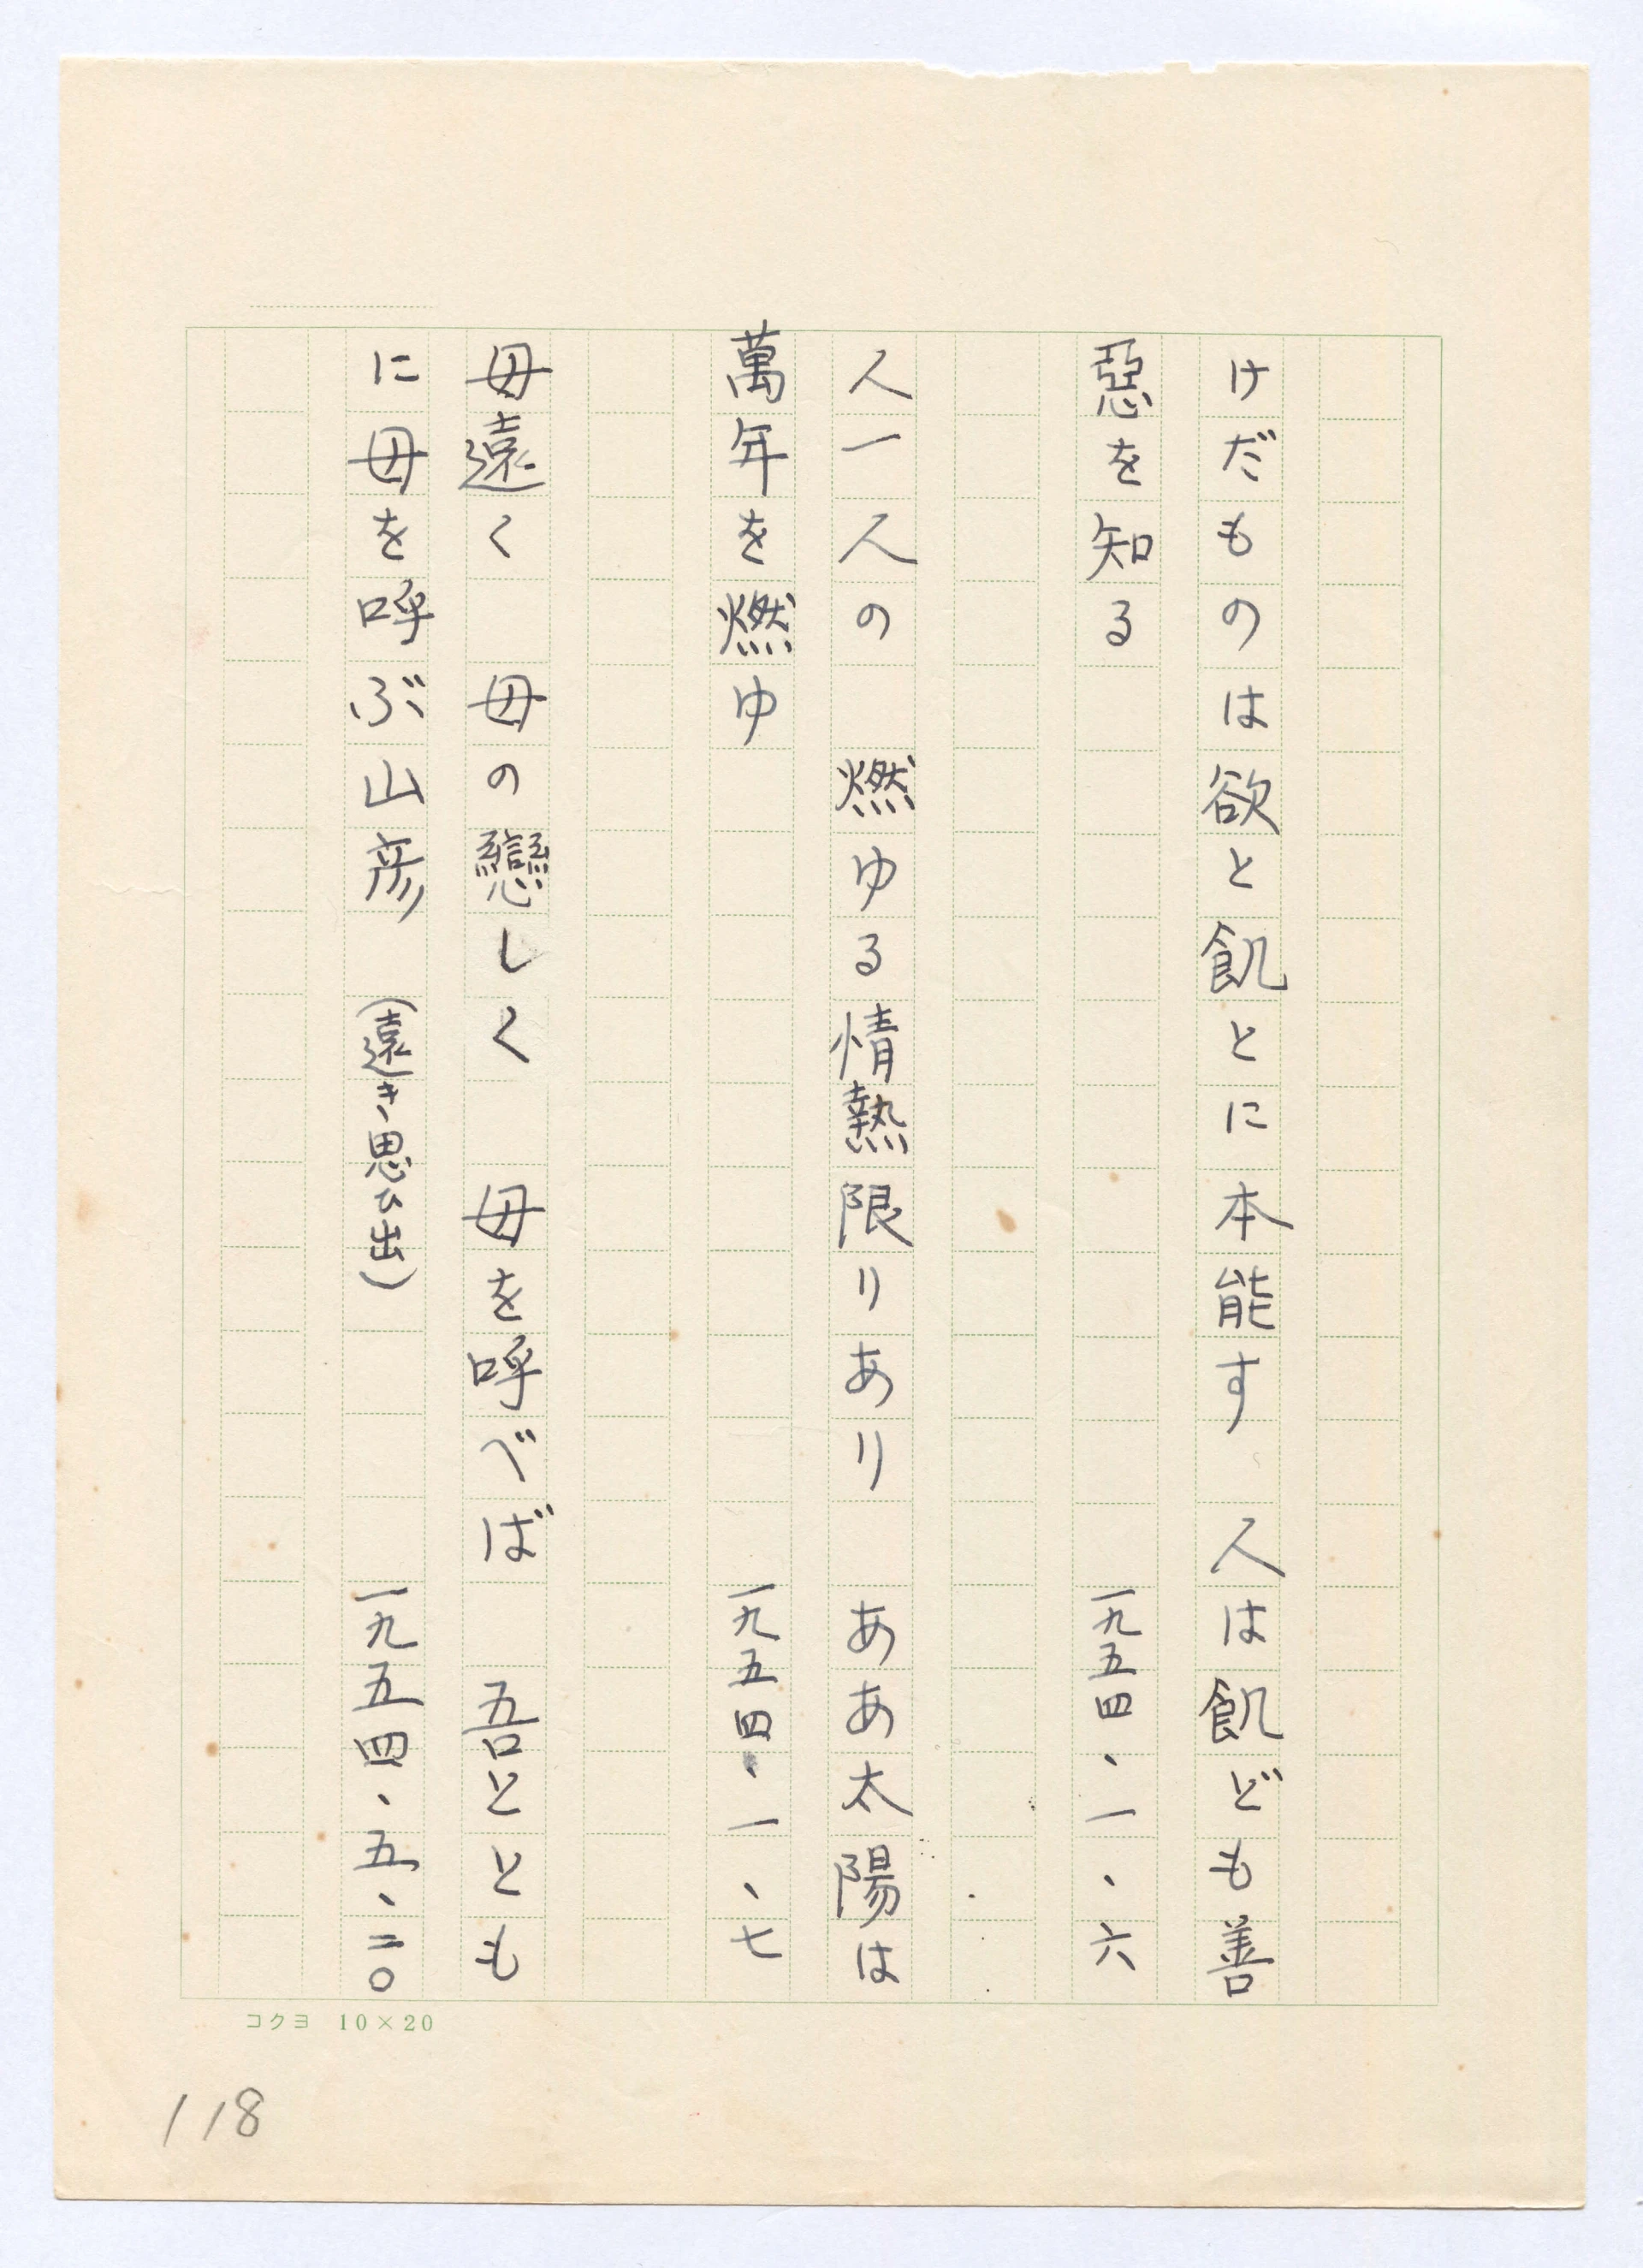 けだものは欲と飢とに本能す　人は飢ども善
惡を知る　一九五四、一、六
人一人の　燃ゆる情熱限りあり　ああ太陽は
萬年を燃ゆ　一九五四、一、七
母遠く　母の戀しく　母を呼べば　吾ととも
に母を呼ぶ山彦　(遠き思ひ出)　一九五四、五、二〇
コクヨ　10×20
118